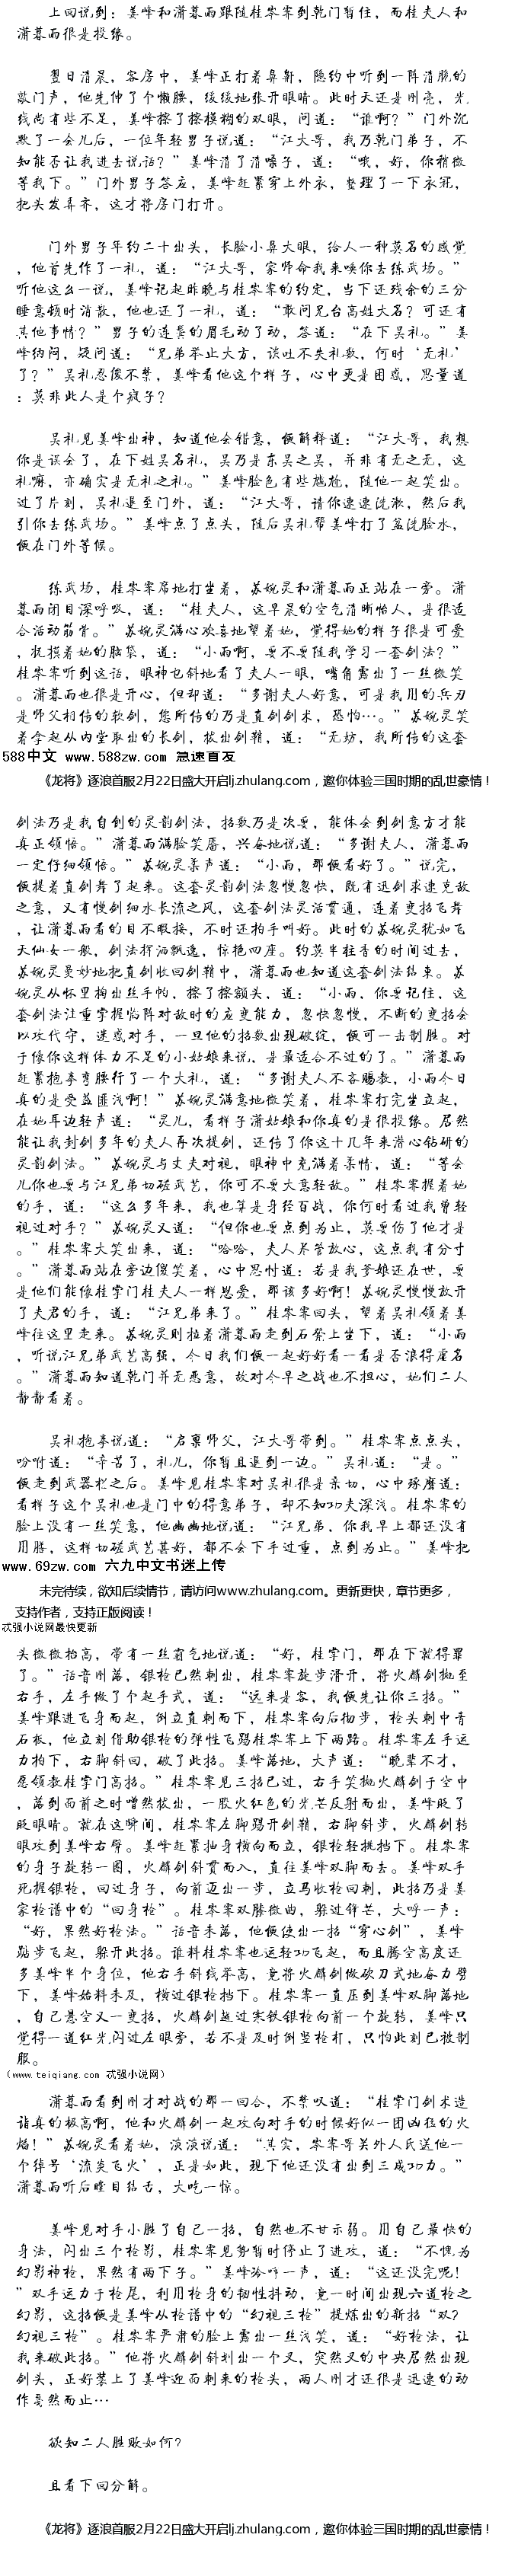 上回说到：姜峰和潇暮雨跟随桂岑霖到乾门暂住，而桂夫人和
潇暮雨很是投缘。
翌日清晨，客房中，姜峰正打着鼻鼾，隐约中听到一阵清脆的
敲门声，他先伸了个懒腰，缓缓地张开眼睛。此时天还是刚亮，光
线尚有些不足，姜峰擦了擦模糊的双眼，问道：“谁啊？”门外沉
默了一会儿后，一位年轻男子说道：“江大哥，我乃乾门弟子，不
知能否让我进去说话？”姜峰清了清嗓子，道：“哦，好，你稍微
等我下。”门外男子答应，姜峰赶紧穿上外衣，整理了一下衣冠，
把头发弄齐，这才将房门打开。
门外男子年约二十出头，长脸小鼻大眼，给人一种莫名的感觉
，他首先作了一礼，道：“江大哥，家师命我来唤你去练武场。”
听他这么一说，姜峰记起昨晚与桂岑霖的约定，当下还残余的三分
睡意顿时消散，他也还了一礼，道：“敢问兄台高姓大名？可还有
其他事情？”男子的连鬓的眉毛动了动，答道：“在下吴礼。”姜
峰纳闷，疑问道：“兄弟举止大方，谈吐不失礼数，何时‘无礼’
了？”吴礼忍俊不禁，姜峰看他这个样子，心中更是困惑，思量道
：莫非此人是个疯子？
吴礼见姜峰出神，知道他会错意，便解释道：“江大哥，我想
你是误会了，在下姓吴名礼，吴乃是东吴之吴，并非有无之无，这
礼嘛，亦确实是无礼之礼。”姜峰脸色有些尴尬，随他一起笑出。
过了片刻，吴礼退至门外，道：“江大哥，请你速速洗漱，然后我
引你去练武场。”姜峰点了点头，随后吴礼帮姜峰打了盆洗脸水，
便在门外等候。
练武场，桂岑霖席地打坐着，苏婉灵和潇暮雨正站在一旁。潇
暮雨闭目深呼吸，道：“桂夫人，这早晨的空气清晰怡人，是很适
合活动筋骨。”苏婉灵满心欢喜地望着她，觉得她的样子很是可爱
，抚摸着她的脑袋，道：“小雨啊，要不要随我学习一套剑法？”
桂岑霖听到这话，眼神乜斜地看了夫人一眼，嘴角露出了一丝微笑
。潇暮雨也很是开心，但却道：“多谢夫人好意，可是我用的兵刃
是师父相传的软剑，您所传的乃是直剑剑术，恐怕…。”苏婉灵笑
着拿起从内堂取出的长剑，拔出剑鞘，道：“无妨，我所传的这套
588中文 www.588zw.com 急速首发
《龙将》逐浪首服2月22日盛大开启lj.zhulang.com，邀你体验三国时期的乱世豪情！
剑法乃是我自创的灵韵剑法，招数乃是次要，能体会到剑意方才能
真正领悟。”潇暮雨满脸笑靥，兴奋地说道：“多谢夫人，潇暮雨
一定仔细领悟。”苏婉灵柔声道：“小雨，那便看好了。”说完，
便提着直剑舞了起来。这套灵韵剑法忽慢忽快，既有迅剑求速克敌
之意，又有慢剑细水长流之风，这套剑法灵活贯通，连着变招飞舞
，让潇暮雨看的目不暇接，不时还拍手叫好。此时的苏婉灵犹如飞
天仙女一般，剑法挥洒飘逸，惊艳四座。约莫半柱香的时间过去，
苏婉灵曼妙地把直剑收回剑鞘中，潇暮雨也知道这套剑法结束。苏
婉灵从怀里掏出丝手帕，擦了擦额头，道：“小雨，你要记住，这
套剑法注重掌握临阵对敌时的应变能力，忽快忽慢，不断的变招会
以攻代守，迷惑对手，一旦他的招数出现破绽，便可一击制胜。对
于像你这样体力不足的小姑娘来说，是最适合不过的了。”潇暮雨
赶紧抱拳弯腰行了一个大礼，道：“多谢夫人不吝赐教，小雨今日
真的是受益匪浅啊！”苏婉灵满意地微笑着，桂岑霖打完坐立起，
在她耳边轻声道：“灵儿，看样子潇姑娘和你真的是很投缘。居然
能让我封剑多年的夫人再次提剑，还传了你这十几年来潜心钻研的
灵韵剑法。”苏婉灵与丈夫对视，眼神中充满着柔情，道：“等会
儿你也要与江兄弟切磋武艺，你可不要大意轻敌。”桂岑霖握着她
的手，道：“这么多年来，我也算是身经百战，你何时看过我曾轻
视过对手？”苏婉灵又道：“但你也要点到为止，莫要伤了他才是
。”桂岑霖大笑出来，道：“哈哈，夫人尽管放心，这点我有分寸
。”潇暮雨站在旁边傻笑着，心中思忖道：若是我爹娘还在世，要
是他们能像桂掌门桂夫人一样恩爱，那该多好啊！苏婉灵慢慢放开
了夫君的手，道：“江兄弟来了。”桂岑霖回头，望着吴礼领着姜
峰往这里走来。苏婉灵则拉着潇暮雨走到石凳上坐下，道：“小雨
，听说江兄弟武艺高强，今日我们便一起好好看一看是否浪得虚名
。”潇暮雨知道乾门并无恶意，故对今早之战也不担心，她们二人
静静看着。
吴礼抱拳说道：“启禀师父，江大哥带到。”桂岑霖点点头，
吩咐道：“辛苦了，礼儿，你暂且退到一边。”吴礼道：“是。”
便走到武器栏之后。姜峰见桂岑霖对吴礼很是亲切，心中琢磨道：
看样子这个吴礼也是门中的得意弟子，却不知功夫深浅。桂岑霖的
脸上没有一丝笑意，他幽幽地说道：“江兄弟，你我早上都还没有
用膳，这样切磋武艺甚好，都不会下手过重，点到为止。”姜峰把
www.69zw.com 六九中文书迷上传
未完待续，欲知后续情节，请访问www.zhulang.com。更新更快，章节更多，
支持作者，支持正版阅读！
忒强小说网最快更新
头微微抬高，带有一丝霸气地说道：“好，桂掌门，那在下就得罪
了。”话音刚落，银枪已然刺出，桂岑霖旋步滑开，将火麟剑抛至
右手，左手做了个起手式，道：“远来是客，我便先让你三招。”
姜峰跟进飞身而起，倒立直刺而下，桂岑霖向后抄步，枪头刺中青
石板，他立刻借助银枪的弹性飞踢桂岑霖上下两路。桂岑霖左手运
力拍下，右脚斜回，破了此招。姜峰落地，大声道：“晚辈不才，
愿领教桂掌门高招。”桂岑霖见三招已过，右手笑抛火麟剑于空中
，落到面前之时噌然拔出，一股火红色的光芒反射而出，姜峰眨了
眨眼睛。就在这瞬间，桂岑霖左脚踢开剑鞘，右脚斜步，火麟剑转
眼攻到姜峰右臂。姜峰赶紧抽身横向而立，银枪轻挑挡下。桂岑霖
的身子旋转一圈，火麟剑斜贯而入，直往姜峰双脚而去。姜峰双手
死握银枪，回过身子，向前迈出一步，立马收枪回刺，此招乃是姜
家枪谱中的“回身枪”。桂岑霖双膝微曲，躲过锋芒，大呼一声：
“好，果然好枪法。”话音未落，他便使出一招“穿心剑”，姜峰
踮步飞起，躲开此招。谁料桂岑霖也运轻功飞起，而且腾空高度还
多姜峰半个身位，他右手斜线举高，竟将火麟剑做砍刀式地奋力劈
下，姜峰始料未及，横过银枪挡下。桂岑霖一直压到姜峰双脚落地
，自己悬空又一变招，火麟剑越过寒铁银枪向前一个旋转，姜峰只
觉得一道红光闪过左眼旁，若不是及时倒竖枪杆，只怕此刻已被制
服。
（www.teiqiang.com 忒强小说网）
潇暮雨看到刚才对战的那一回合，不禁叹道：“桂掌门剑术造
诣真的极高啊，他和火麟剑一起攻向对手的时候好似一团凶猛的火
焰！”苏婉灵看着她，淡淡说道：“其实，岑霖哥关外人氏送他一
个绰号‘流炎飞火’，正是如此，现下他还没有出到三成功力。”
潇暮雨听后瞠目结舌，大吃一惊。
姜峰见对手小胜了自己一招，自然也不甘示弱。用自己最快的
身法，闪出三个枪影，桂岑霖见势暂时停止了进攻，道：“不愧为
幻影神枪，果然有两下子。”姜峰冷哼一声，道：“这还没完呢！
”双手运力于枪尾，利用枪身的韧性抖动，竟一时间出现六道枪之
幻影，这招便是姜峰从枪谱中的“幻视三枪”提炼出的新招“双？
幻视三枪”。桂岑霖严肃的脸上露出一丝浅笑，道：“好枪法，让
我来破此招。”他将火麟剑斜划出一个叉，突然叉的中央居然出现
剑头，正好禁上了姜峰迎面刺来的枪头，两人刚才还是迅速的动
作戛然而止…
欲知二人胜败如何？
且看下回分解。
《龙将》逐浪首服2月22日盛大开启lj.zhulang.com，邀你体验三国时期的乱世豪情！